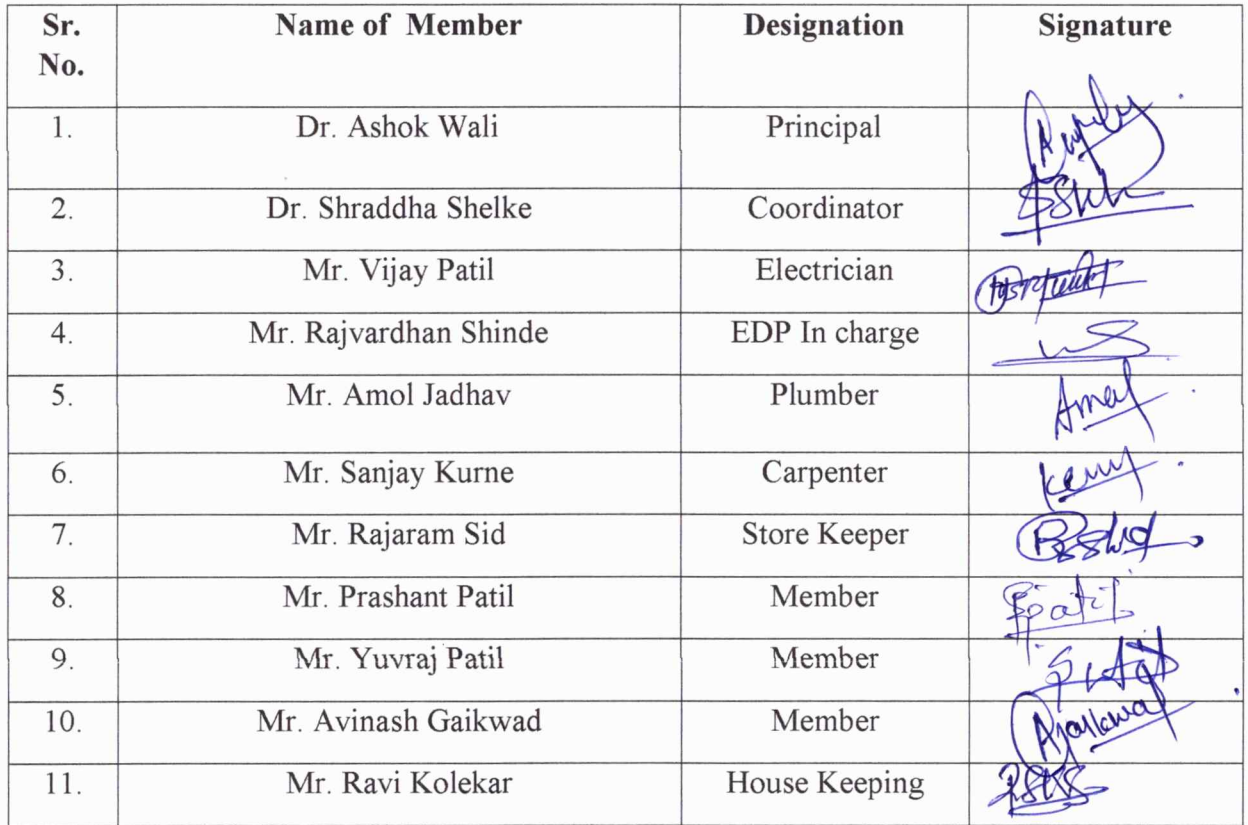 Sr. No. Name of Member Designation Signature
1. Dr. Ashok Wali Principal
2. Dr. Shraddha Shelke Coordinator
3. Mr. Vijay Patil Electrician
4. Mr. Rajvardhan Shinde EDP In charge
5. Mr. Amol Jadhav Plumber
6. Mr. Sanjay Kurne Carpenter
7. Mr. Rajaram Sid Store Keeper
8. Mr. Prashant Patil Member
9. Mr. Yuvraj Patil Member
10. Mr. Avinash Gaikwad Member
11. Mr. Ravi Kolekar House Keeping